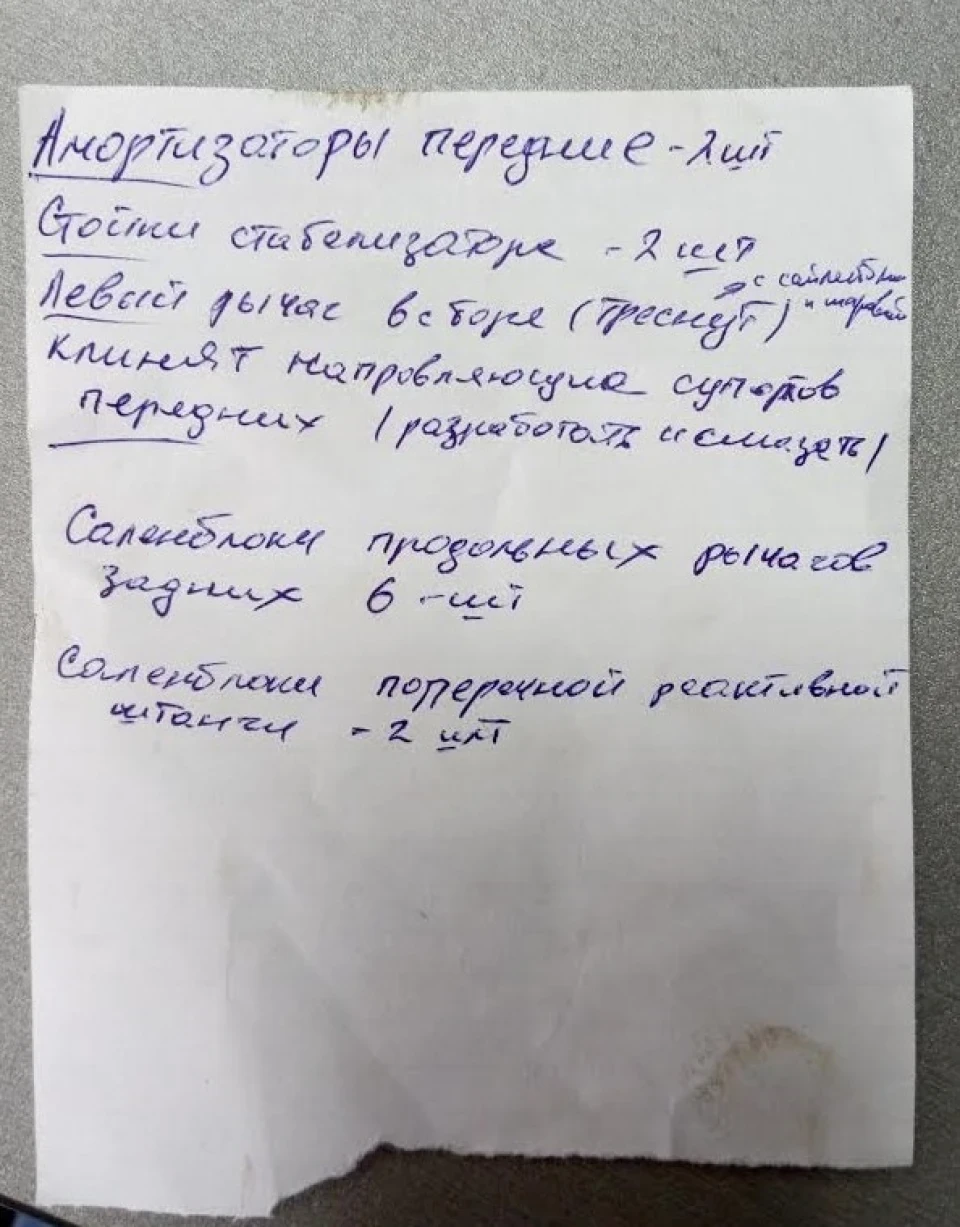 Амортизаторы передние - 2 шт
Стойки стабелизатора - 2 шт
Левый рычаг в сборе (треснут)
с сайлентбл
и шаровой
Клинят напровляющиа супортов
передних (разработать и смазать)
Саленблоки продольных рычагов
задних 6 - шт
Саленблоки поперечной реактивной
штанги - 2 шт